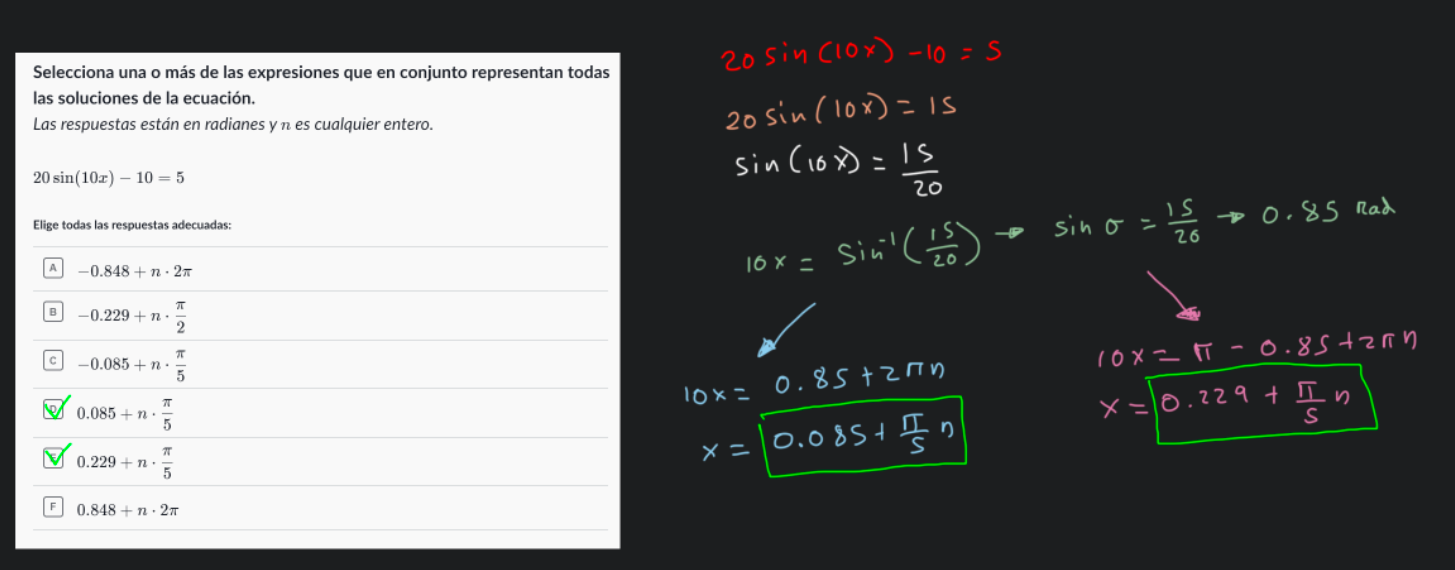 Selecciona una o más de las expresiones que en conjunto representan todas
las soluciones de la ecuación.
Las respuestas están en radianes y n es cualquier entero.
20 sin(10x) − 10 = 5
Elige todas las respuestas adecuadas:
A −0.848 + n · 2π
B −0.229 + n · π/2
C −0.085 + n · π/5
D 0.085 + n · π/5
E 0.229 + n · π/5
F 0.848 + n · 2π
20 sin (10x) - 10 = 5
20 sin (10x) = 15
sin (10x) = 15/20
10x = sin⁻¹ (15/20) → sin σ = 15/20 → 0.85 Rad
10x = 0.85 + 2πn
x = 0.085 + π/5 n
10x = π - 0.85 + 2πn
x = 0.229 + π/5 n